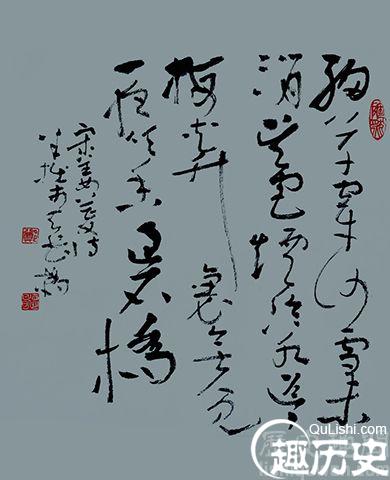 细草穿沙雪半
消吴宫烟冷水迢迢
梅花竹
里无人见
一夜吹香过石橋
宋姜夔诗
QuLishi.com
趣历史